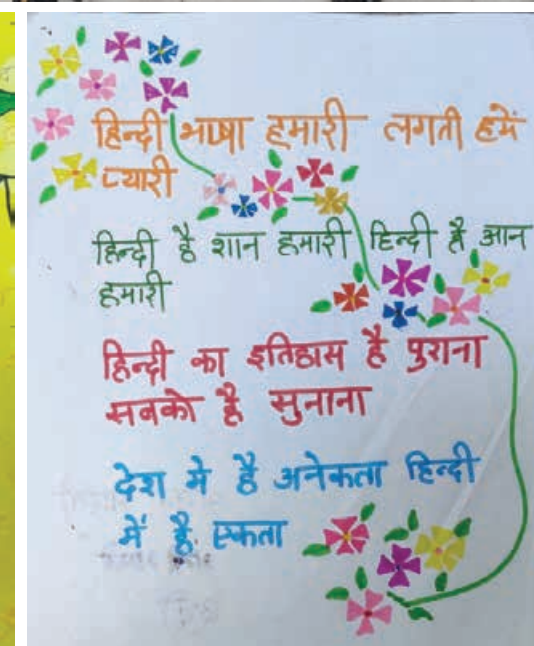 हिन्दी भाषा हमारी लगती हमें
प्यारी
हिन्दी है शान हमारी हिन्दी है आन
हमारी
हिन्दी का इतिहास है पुराना
सबको है सुनाना
देश मे है अनेकता हिन्दी
में है एकता